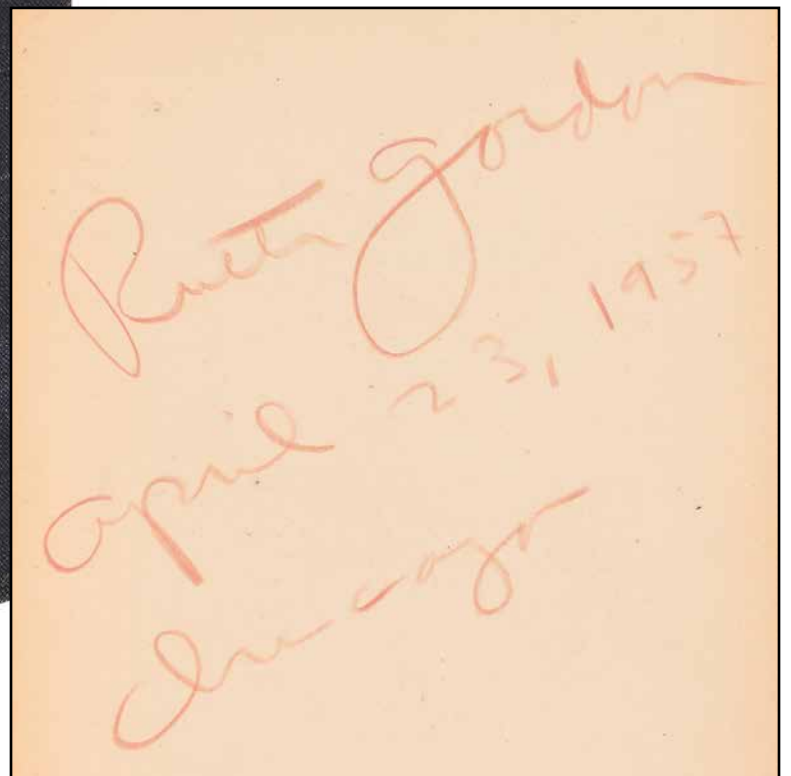 Ruth Gordon
April 23, 1957
Chicago